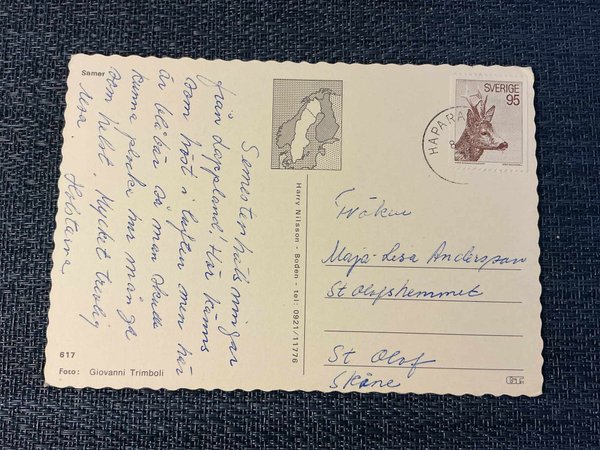 Samer
Semesterhälsningar
från Lappland. Här känns
som höst i luften men här
är blåbär så man skulle
kunna plocka hur många
som helst. Mycket trevlig
resa.
617
Foto: Giovanni Trimboli
Harry Nilsson - Boden - tel: 0921/11776
SVERIGE
95
HAPARA
Fröken
Maja-Lesa Andersson
St Olofshemmet
St Olof
Skåne